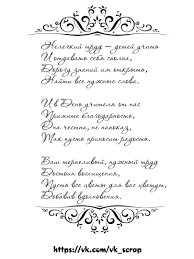 Нелегкий труд – детей учить
И отдавать себя сполна,
Дорогу знаний им открыть,
Найти все нужные слова.

И в День учителя от нас
Примите благодарность,
Она честна, не напоказ,
Так пусть приносит радость.

Ваш терпеливый, нужный труд
Достоин восхищения,
Пусть все цветы для вас цветут,
Добавив вдохновения.

https://vk.com/vk_scrap